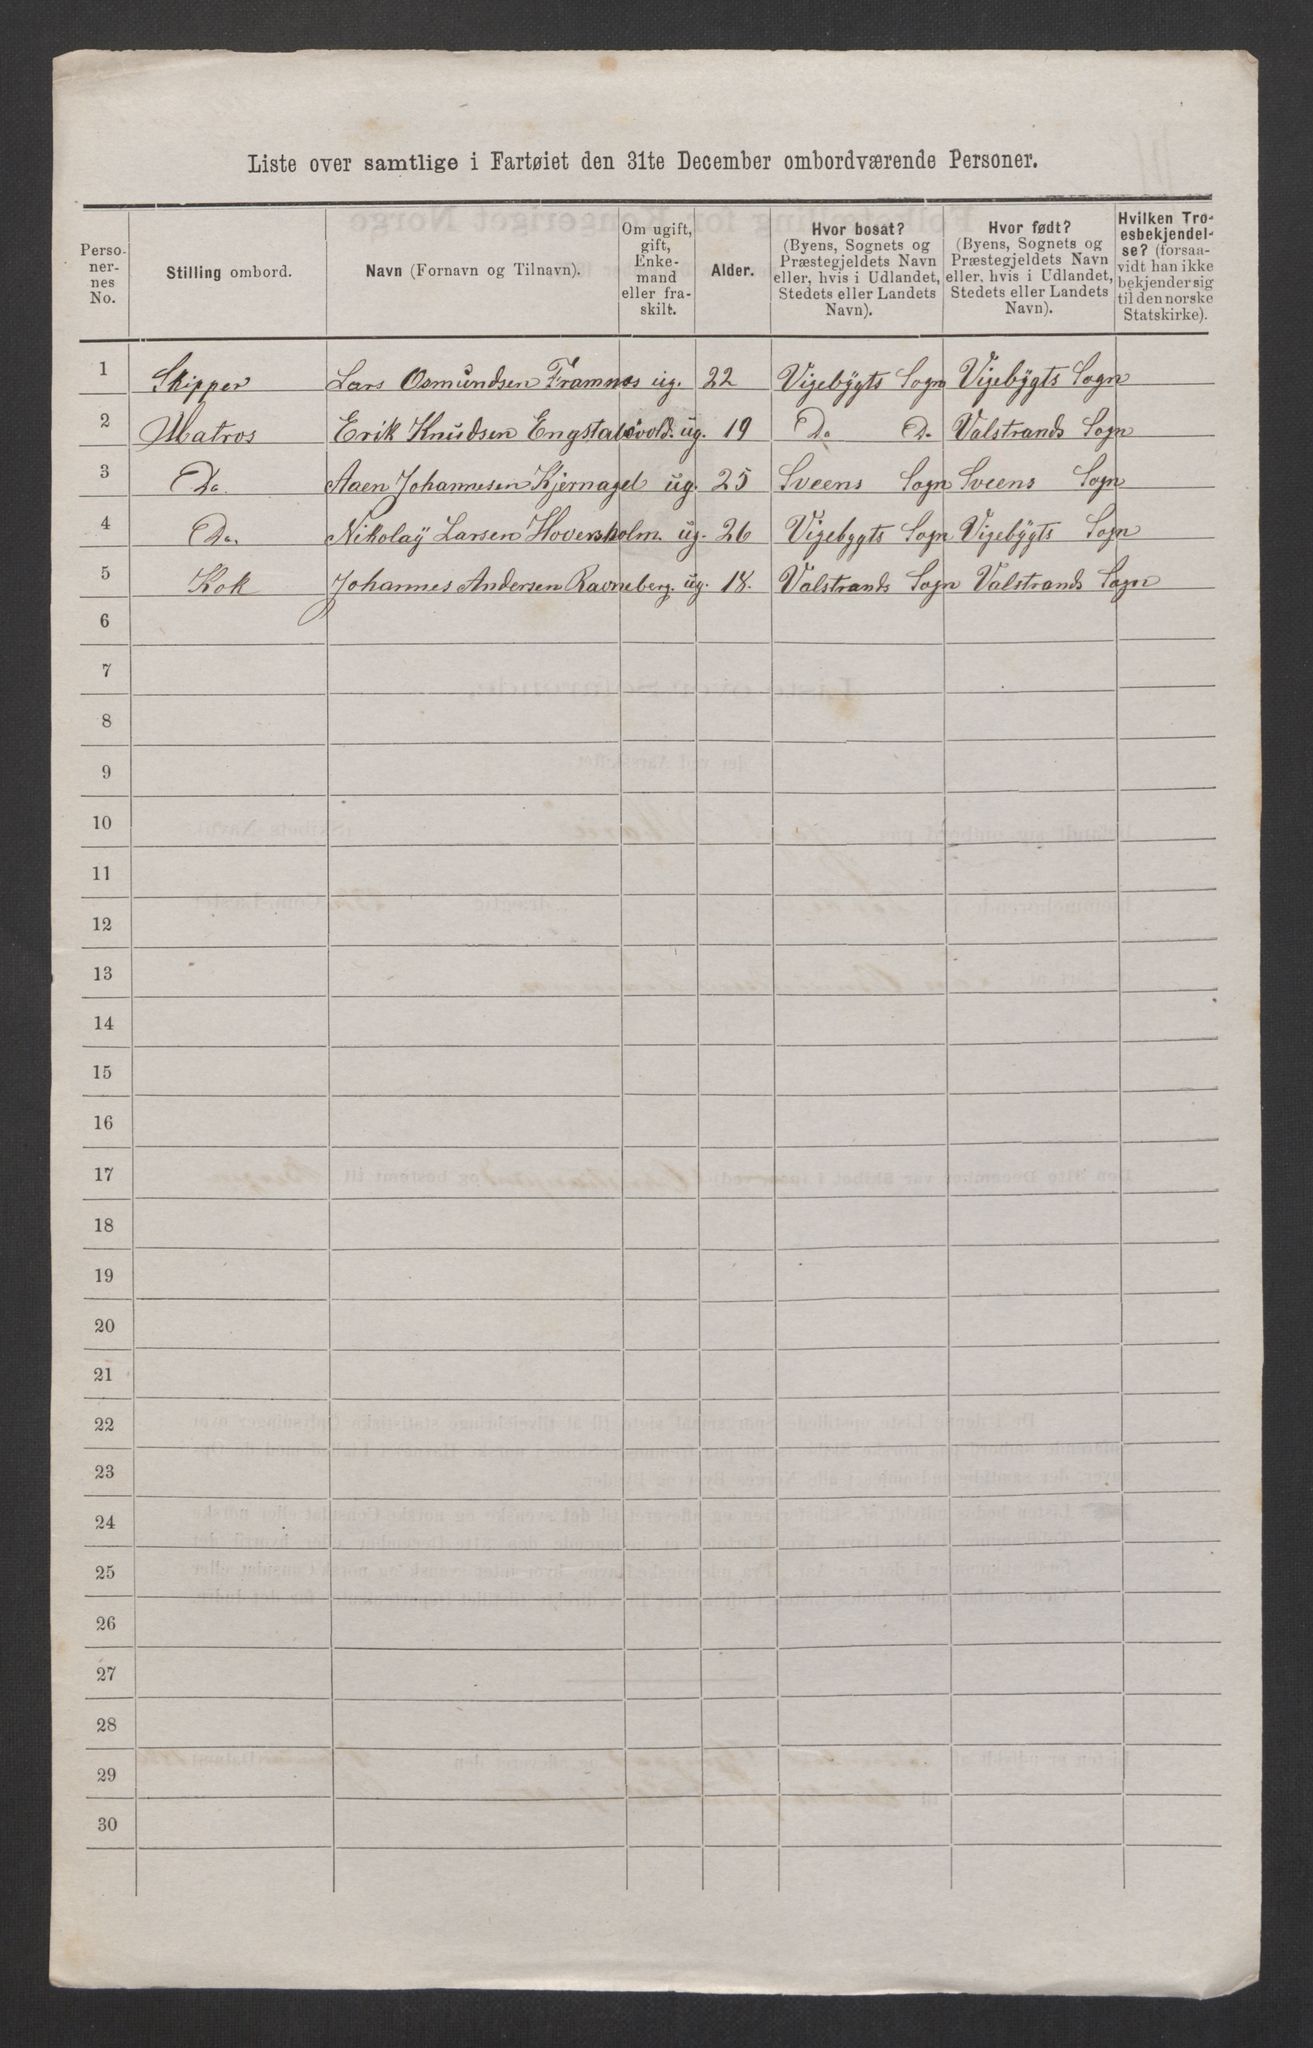 Liste over samtlige i Fartøiet den 31te December ombordværende Personer.
Perso-
ner-
nes
No.
Stilling ombord.
Navn (Fornavn og Tilnavn).
Om ugift,
gift,
Enke-
mand
eller fra-
skilt.
Alder.
Hvor bosat?
(Byens, Sognets og
Præstegjeldets Navn
eller, hvis i Udlandet,
Stedets eller Landets
Navn).
Hvor født?
(Byens, Sognets og
Præstegjeldets Navn
eller, hvis i Udlandet,
Stedets eller Landets
Navn).
Hvilken Tro-
esbekjendel-
se? (forsaa-
vidt han ikke
bekjender sig
til den norske
Statskirke).
1 Skipper Lars Osmundsen Framnes ug. 22 Vigebÿgts Sogn Vigebÿgts Sogn
2 Matros Erik Knudsen ug. 19 Do Do Valstrands Sogn
3 Do. Aaen Johannesen Kjernagel ug. 25 Sveens Sogn Sveens Sogn
4 Do. Nikolaÿ Larsen Hoversholm. ug. 26 Vigebygts Sogn Vigebÿgts Sogn
5 Kok Johannes Andersen Ravneberg. ug. 18. Valstrands Sogn Valstrands Sogn
6
7
8
9
10
11
12
13
14
15
16
17
18
19
20
21
22
23
24
25
26
27
28
29
30